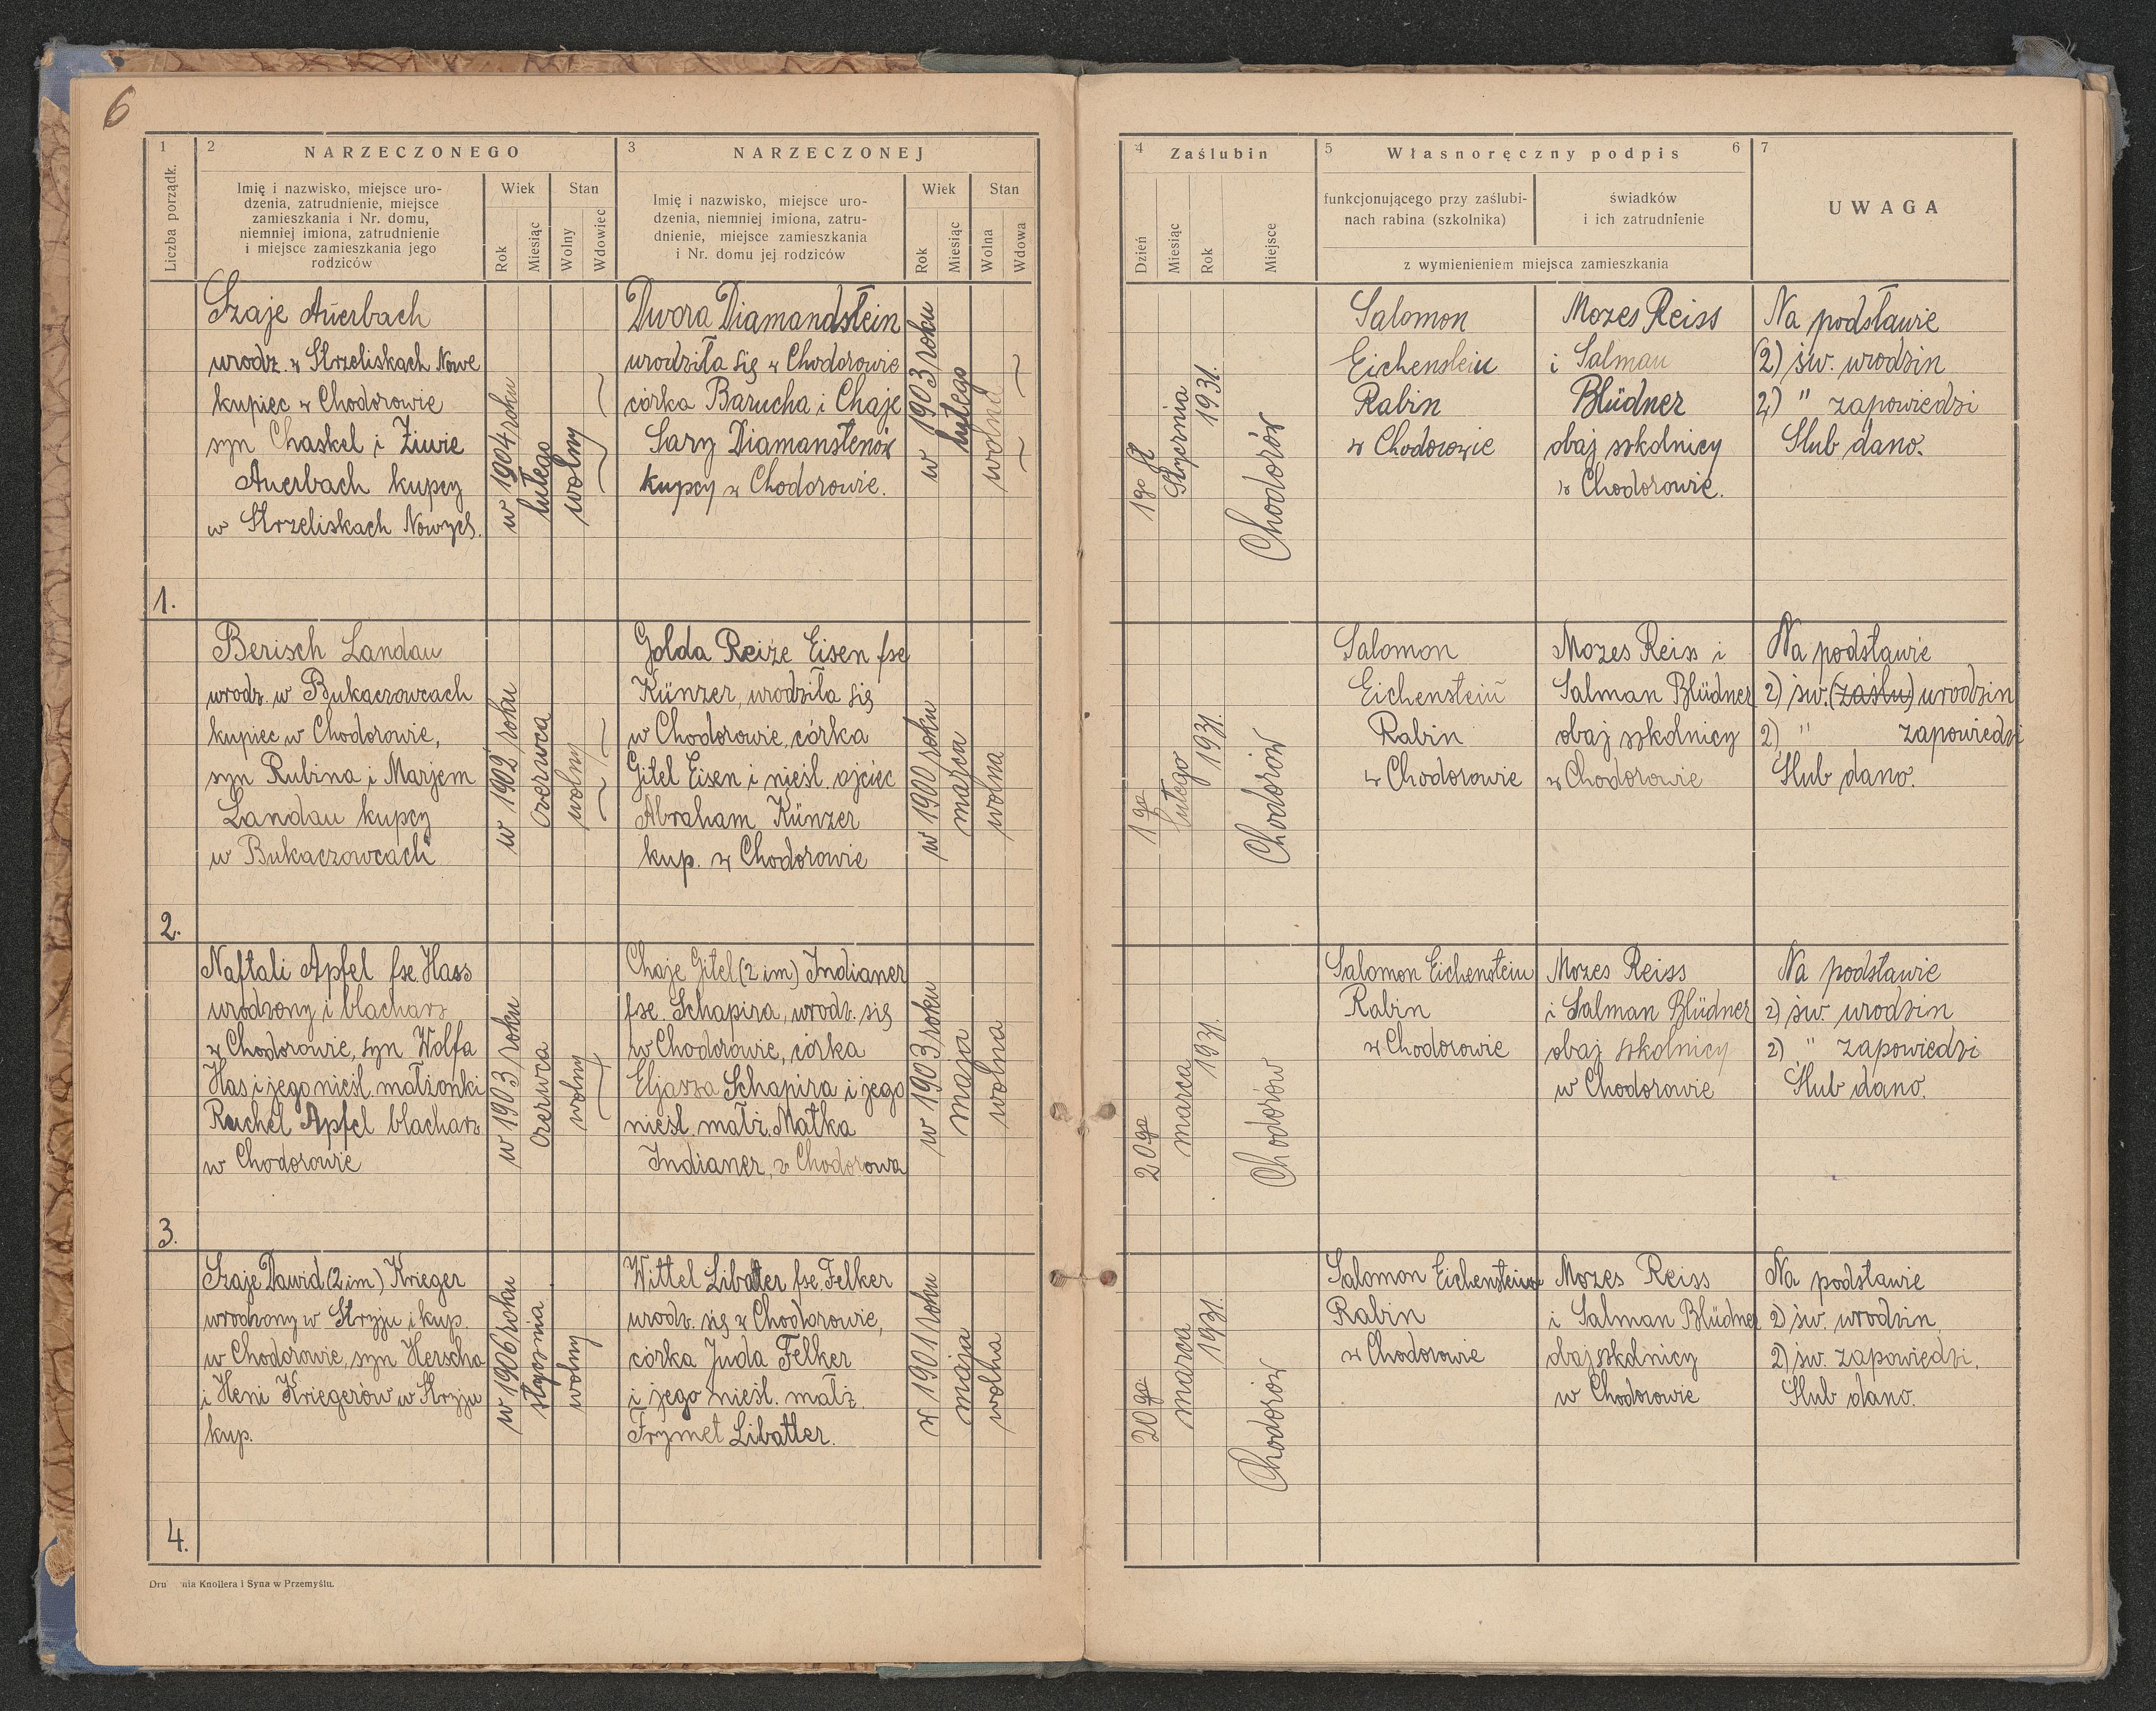 6
1
2
NARZECZONEGO
3
NARZECZONEJ
Liczba porządk.
Imię i nazwisko, miejsce uro-
dzenia, zatrudnienie, miejsce
zamieszkania i Nr. domu,
niemniej imiona, zatrudnienie
i miejsce zamieszkania jego
rodziców
Wiek
Stan
Rok
Miesiąc
Wolny
Wdowiec
Imię i nazwisko, miejsce uro-
dzenia, niemniej imiona, zatru-
dnienie, miejsce zamieszkania
i Nr. domu jej rodziców
Wiek
Stan
Rok
Miesiąc
Wolna
Wdowa
4
Zaślubin
5
Własnoręczny podpis
6
7
Dzień
Miesiąc
Rok
Miejsce
funkcjonującego przy zaślubi-
nach rabina (szkolnika)
świadków
i ich zatrudnienie
z wymienieniem miejsca zamieszkania
UWAGA
1.
Szaje Auerbach
urodz. w Strzeliskach Nowe
kupiec w Chodorowie
syn Chaskel i Ziwie
Auerbach kupcy
w Strzeliskach Nowych.
w 1904 roku
lutego
wolny
Dwora Diamandstein
urodziła się w Chodorowie
córka Barucha i Chaje
Sary Diamanstenów
kupcy w Chodorowie.
w 1903 roku
lutego
wolna
1go
Stycznia
1931.
Chodorów
Salomon
Eichenstein
Rabin
w Chodorowie
Mozes Reiss
i Salman
Blüdner
obaj szkolnicy
w Chodorowie.
Na podstawie
(2) św. urodzin
2) " zapowiedzi
Ślub dano.
2.
Berisch Landau
urodz. w Bukaczowcach
kupiec w Chodorowie,
syn Rubina i Marjem
Landau kupcy
w Bukaczowcach
w 1902 roku
czerwca
wolny
Golda Reize Eisen fse
Künzer, urodziła się
w Chodorowie, córka
Gitel Eisen i nieśl. ojciec
Abraham Künzer
kup. w Chodorowie
w 1900 roku
marca
wolna
1go
lutego
1931.
Chodorów
Salomon
Eichenstein
Rabin
w Chodorowie
Mozes Reiss i
Salman Blüdner
obaj szkolnicy
w Chodorowie
Na podstawie
2) św. (zaślu) urodzin
2) " zapowiedzi
Ślub dano.
3.
Naftali Apfel fse. Hass
urodzony i blacharz
w Chodorowie, syn Wolfa
Has i jego nieśl. małżonki
Rachel Apfel blacharz
w Chodorowie
w 1903 roku
czerwca
wolny
Chaje Gitel (2 im) Indianer
fse. Schapira, urodz. się
w Chodorowie, córka
Eljasza Schapira i jego
nieśl. małż. Małka
Indianer, z Chodorowa
w 1903 roku
maja
wolna
20go
marca
1931.
Chodorów
Salomon Eichenstein
Rabin
w Chodorowie
Mozes Reiss
i Salman Blüdner
obaj szkolnicy
w Chodorowie
Na podstawie
2) św. urodzin
2) " zapowiedzi
Ślub dano.
4.
Szaje Dawid (2 im) Krieger
urodzony w Stryju i kup.
w Chodorowie, syn Herscha
i Heni Kriegerów w Stryju
kup.
w 1906 roku
stycznia
wolny
Wittel Libatter fse. Felker
urodz. się w Chodorowie,
córka Juda Felker
i jego nieśl. małż.
Frymet Libatter.
w 1901 roku
maja
wolna
20go
marca
1931.
Chodorów
Salomon Eichenstein
Rabin
w Chodorowie
Mozes Reiss
i Salman Blüdner
obaj szkolnicy
w Chodorowie
Na podstawie
2) św. urodzin
2) św. zapowiedzi.
Ślub dano.
Knollera i Syna w Przemyślu.